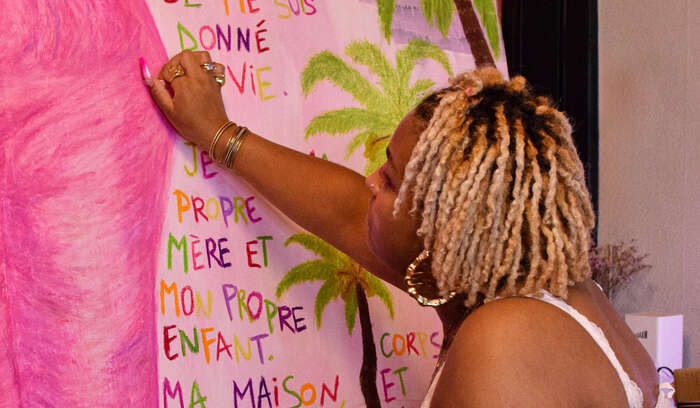 ME SUIS
DONNÉ
VIE.
JE
PROPRE
MÈRE ET
MON PROPRE
ENFANT.
MA MAISON,
CORPS
ET